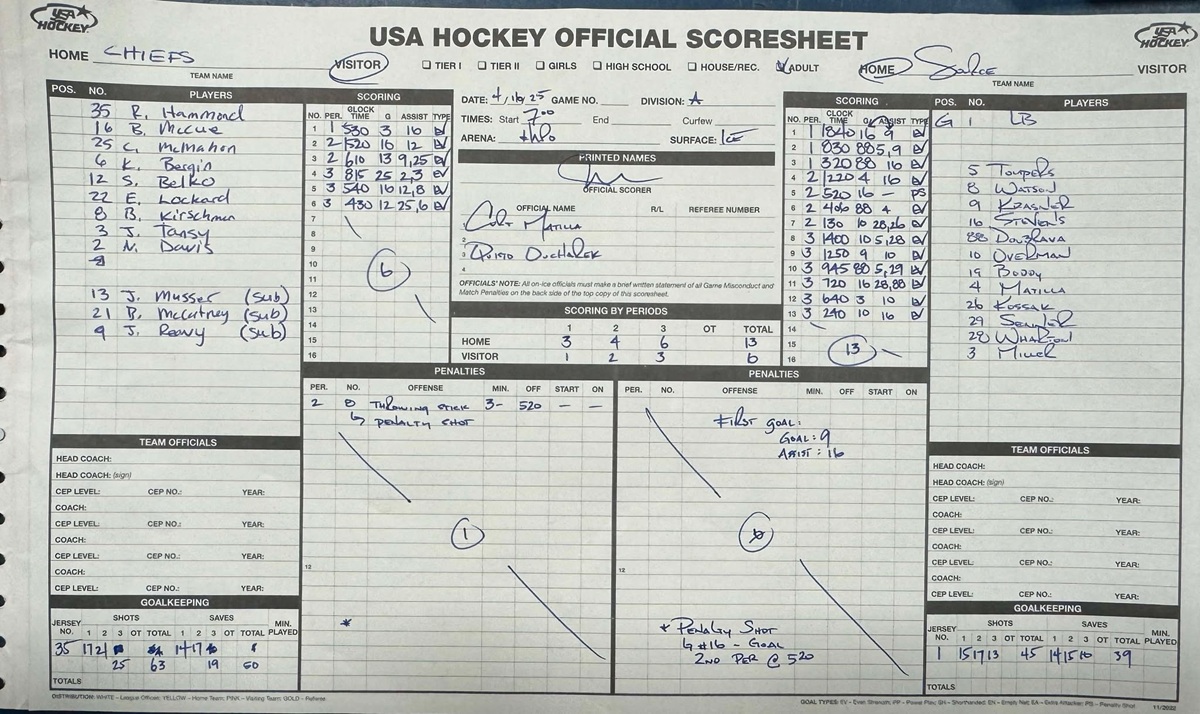 USA HOCKEY
USA HOCKEY OFFICIAL SCORESHEET
USA HOCKEY
HOME CHIEFS VISITOR
TEAM NAME
☐ TIER I ☐ TIER II ☐ GIRLS ☐ HIGH SCHOOL ☐ HOUSE/REC. ☑ ADULT
HOME VISITOR
TEAM NAME
POS. NO. PLAYERS
35 R. Hammond
16 B. McCue
25 C. McMahon
6 K. Bergin
12 S. Belko
22 E. Lockard
8 B. Kirschman
3 J. Tansy
2 N. Davis
13 J. Musser (sub)
21 B. McCutney (sub)
9 J. Reavy (sub)
SCORING
NO. PER. CLOCK TIME G ASSIST TYPE
1 1 530 3 16 EV
2 2 1520 16 12 EV
3 2 610 13 9,25 EV
4 3 815 25 2,3 EV
5 3 540 16 12,8 EV
6 3 430 12 25,6 EV
7
8
9
10
11
12
13
14
15
16
6
DATE: 4/16/25 GAME NO. DIVISION: A
TIMES: Start 7:00 End Curfew
ARENA: SURFACE: ICE
PRINTED NAMES
OFFICIAL SCORER
OFFICIAL NAME R/L REFEREE NUMBER
1 Colt Matilla
2
3
4
OFFICIALS' NOTE: All on-ice officials must make a brief written statement of all Game Misconduct and
Match Penalties on the back side of the top copy of this scoresheet.
SCORING BY PERIODS
1 2 3 OT TOTAL
HOME 3 4 6 13
VISITOR 1 2 3 6
SCORING
NO. PER. CLOCK TIME G ASSIST TYPE
1 1 1840 16 9 EV
2 1 830 88 5,9 EV
3 1 320 88 16 EV
4 2 1220 4 16 EV
5 2 520 16 – PS
6 2 406 88 4 EV
7 2 130 10 28,26 EV
8 3 1400 10 5,28 EV
9 3 1250 9 10 EV
10 3 945 88 5,29 EV
11 3 720 16 28,88 EV
12 3 640 3 10 EV
13 3 240 10 16 EV
14
15
16
13
POS. NO. PLAYERS
G 1 LB
5 Tompers
8 Watson
9 Krasner
16 Stevens
88 Douzrava
10 Overman
19 Boddy
4 Matilla
26 Kossak
29
28 Wharton
3 Miller
PENALTIES
PER. NO. OFFENSE MIN. OFF START ON
2 8 Throwing Stick 3– 520 – –
↳ Penalty Shot
1
12
*
PENALTIES
PER. NO. OFFENSE MIN. OFF START ON
First Goal:
Goal: 9
Assist: 16
12
* Penalty Shot
↳ #16 – Goal
2nd Per @ 520
TEAM OFFICIALS
HEAD COACH:
HEAD COACH: (sign)
CEP LEVEL: CEP NO.: YEAR:
COACH:
CEP LEVEL: CEP NO.: YEAR:
COACH:
CEP LEVEL: CEP NO.: YEAR:
COACH:
CEP LEVEL: CEP NO.: YEAR:
GOALKEEPING
JERSEY NO. SHOTS SAVES MIN. PLAYED
1 2 3 OT TOTAL 1 2 3 OT TOTAL
35 17 21 14 17
25 63 19 50
TOTALS
TEAM OFFICIALS
HEAD COACH:
HEAD COACH: (sign)
CEP LEVEL: CEP NO.: YEAR:
COACH:
CEP LEVEL: CEP NO.: YEAR:
COACH:
CEP LEVEL: CEP NO.: YEAR:
COACH:
CEP LEVEL: CEP NO.: YEAR:
GOALKEEPING
JERSEY NO. SHOTS SAVES MIN. PLAYED
1 2 3 OT TOTAL 1 2 3 OT TOTAL
1 15 17 13 45 14 15 10 39
TOTALS
DISTRIBUTION: WHITE – League Official; YELLOW – Home Team; PINK – Visiting Team; GOLD – Referee
GOAL TYPES: EV – Even Strength; PP – Power Play; SH – Shorthanded; EN – Empty Net; EA – Extra Attacker; PS – Penalty Shot 11/2022